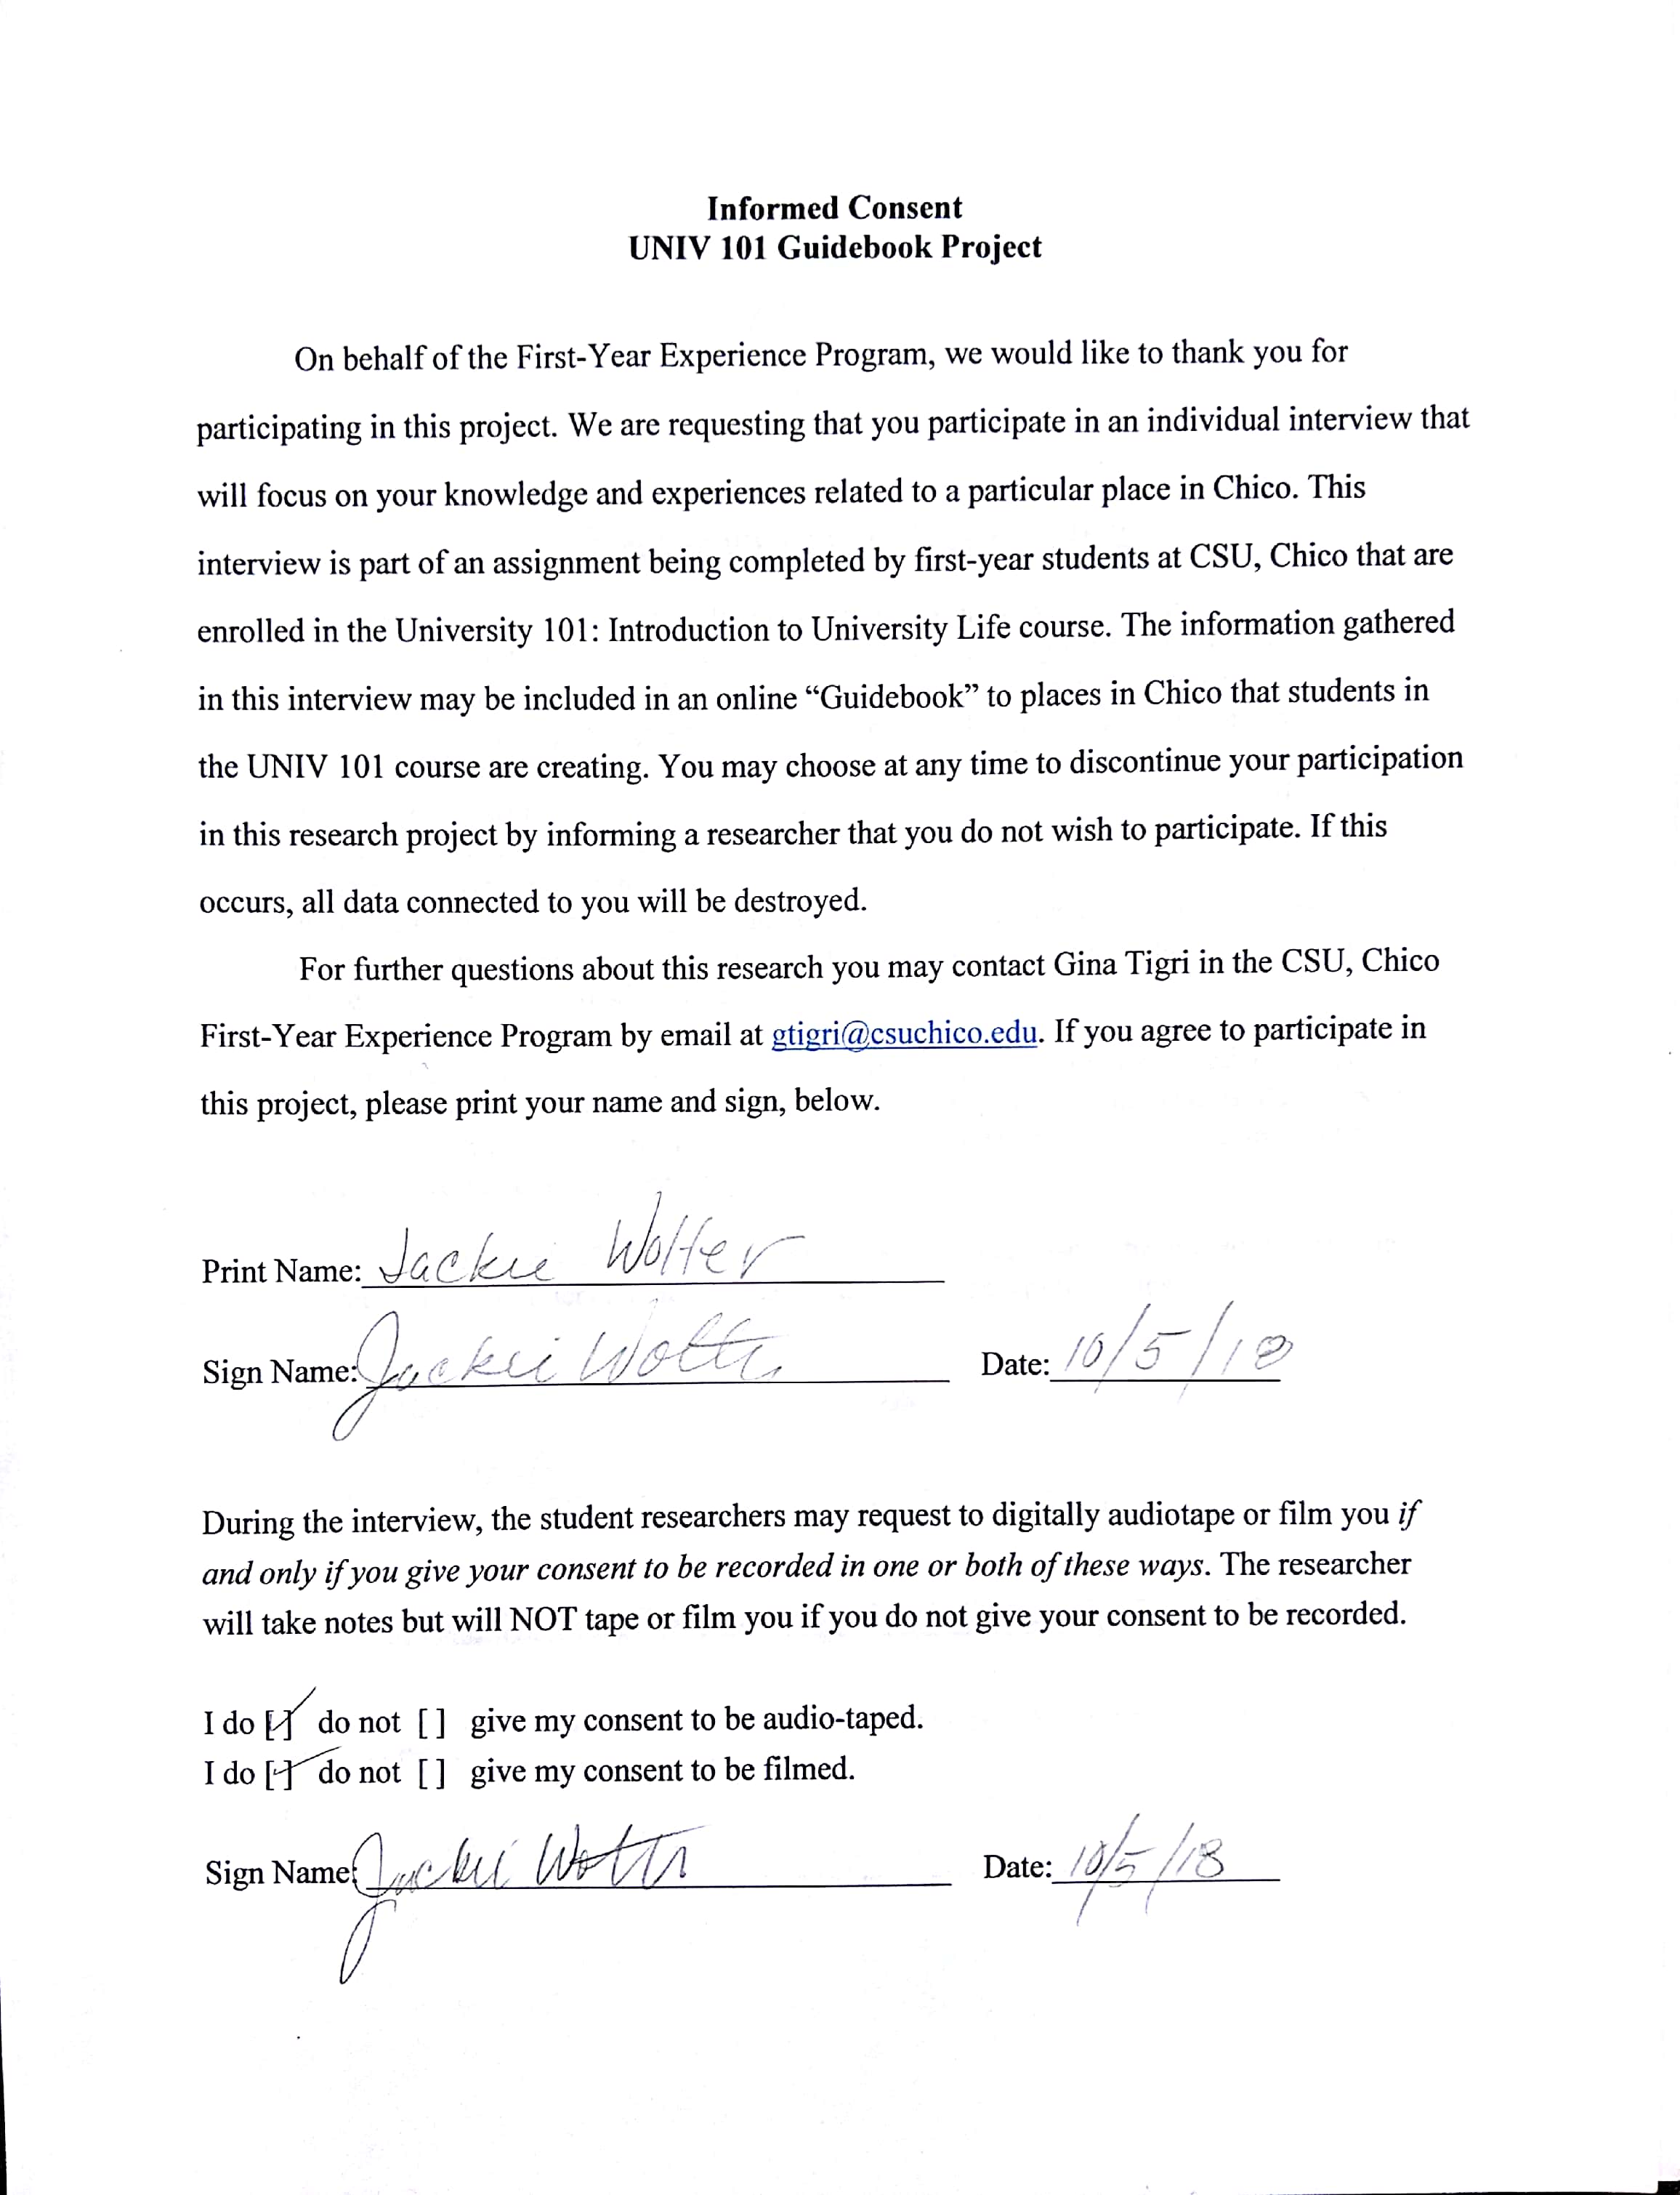 Informed Consent
UNIV 101 Guidebook Project
On behalf of the First-Year Experience Program, we would like to thank you for
participating in this project. We are requesting that you participate in an individual interview that
will focus on your knowledge and experiences related to a particular place in Chico. This
interview is part of an assignment being completed by first-year students at CSU, Chico that are
enrolled in the University 101: Introduction to University Life course. The information gathered
in this interview may be included in an online “Guidebook” to places in Chico that students in
the UNIV 101 course are creating. You may choose at any time to discontinue your participation
in this research project by informing a researcher that you do not wish to participate. If this
occurs, all data connected to you will be destroyed.
For further questions about this research you may contact Gina Tigri in the CSU, Chico
First-Year Experience Program by email at gtigri@csuchico.edu. If you agree to participate in
this project, please print your name and sign, below.
Print Name: Jackie Wolter
Sign Name: Jackie Wolter Date: 10/5/18
During the interview, the student researchers may request to digitally audiotape or film you if
and only if you give your consent to be recorded in one or both of these ways. The researcher
will take notes but will NOT tape or film you if you do not give your consent to be recorded.
I do [✓] do not [ ] give my consent to be audio-taped.
I do [✓] do not [ ] give my consent to be filmed.
Sign Name: Jackie Wolter Date: 10/5/18